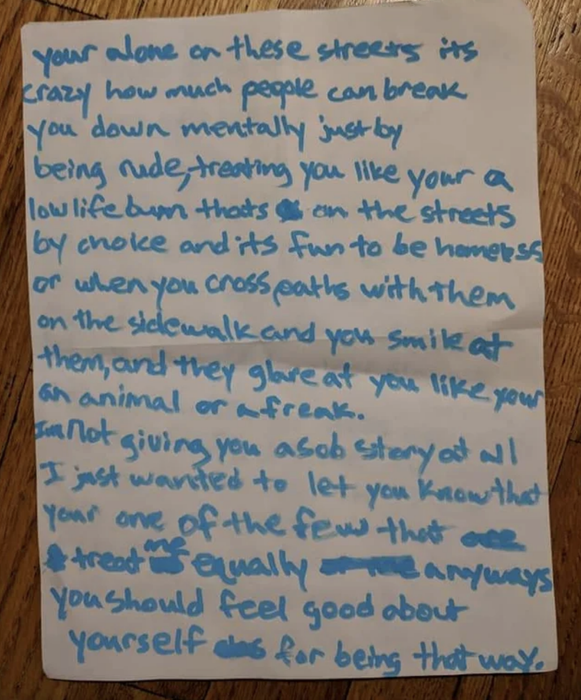 your alone on these streets its
crazy how much people can break
you down mentally just by
being rude, treating you like your a
lowlife bum thats on the streets
by choice and its fun to be homeless
or when you cross paths with them
on the sidewalk and you smile at
them, and they glare at you like your
an animal or a freak.
Im not giving you a sob story at all
I just wanted to let you know that
your one of the few that
treat me equally anyways
you should feel good about
yourself for being that way.